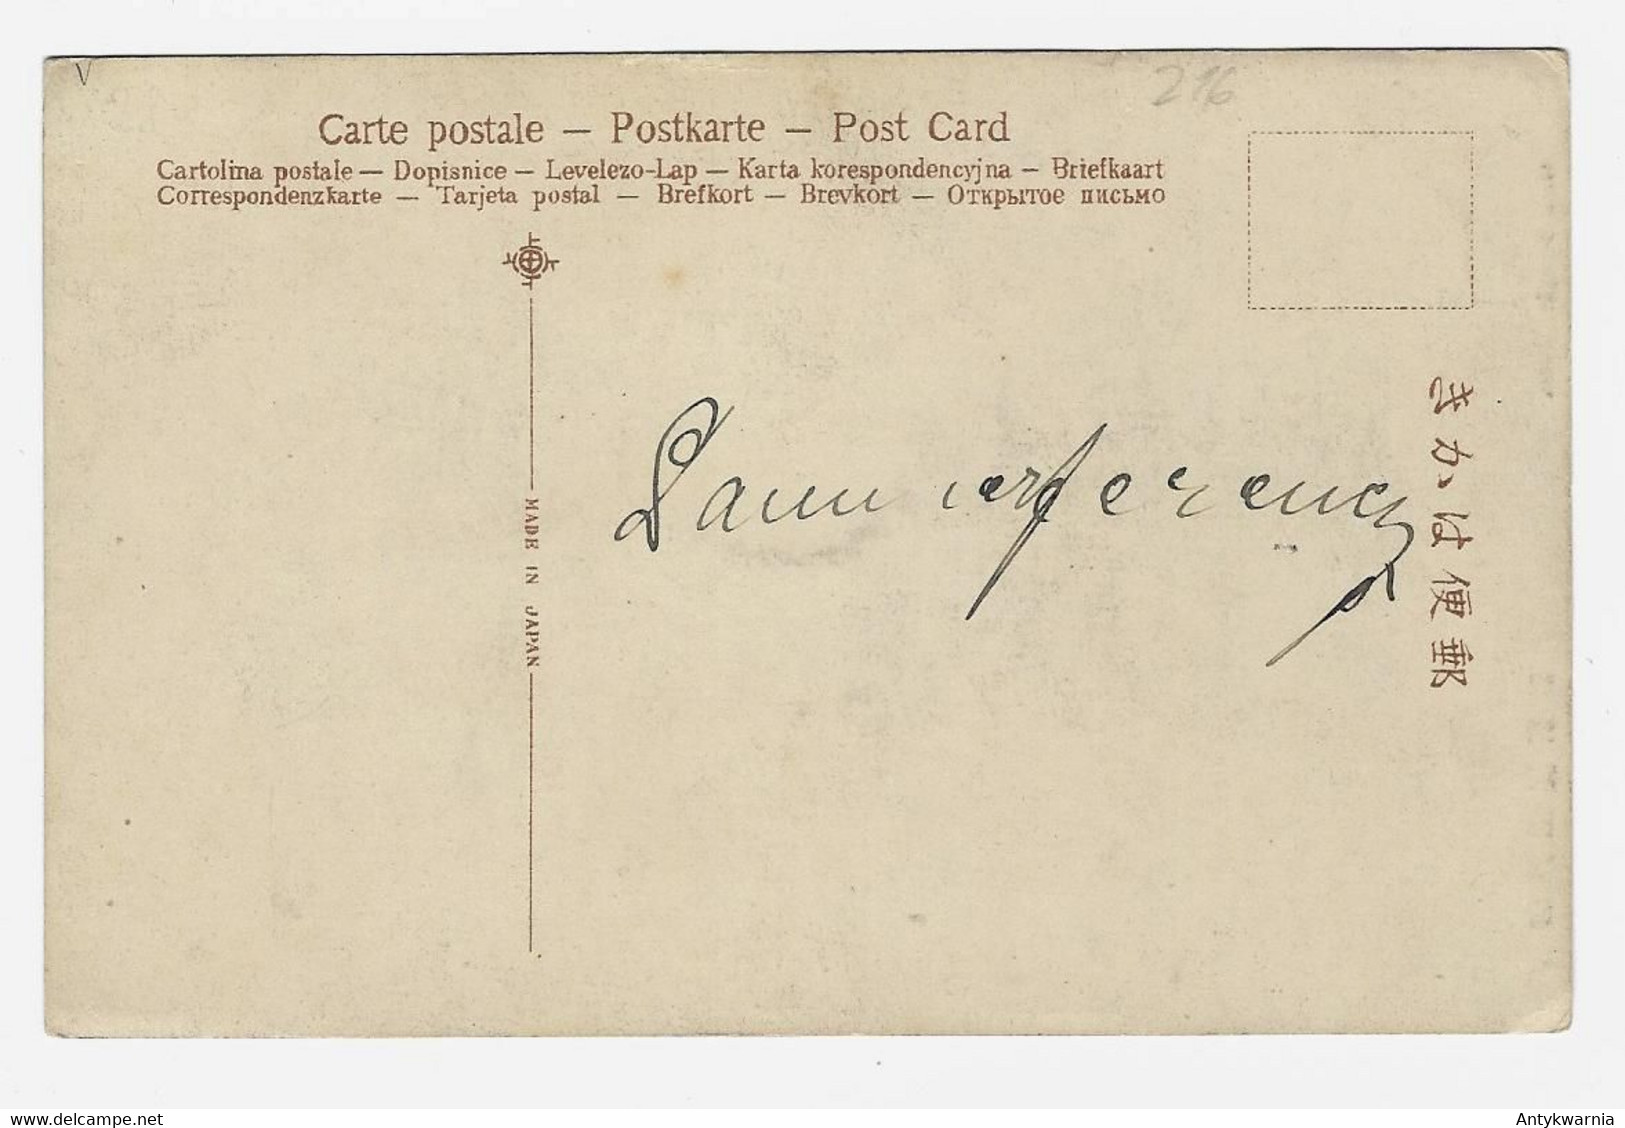 216
Carte postale — Postkarte — Post Card
Cartolina postale — Dopisnice — Levelezo-Lap — Karta korespondencyjna — Briefkaart
Correspondenzkarte — Tarjeta postal — Brefkort — Brevkort — Открытое письмо
MADE IN JAPAN
きかは便郵
the-stamp-collector.com
Antykwarnia